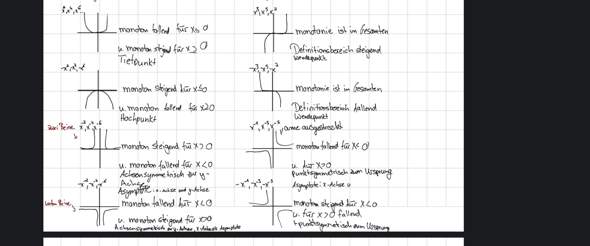 x², x⁴, x⁶
monoton fallend für x≤0
u. monoton steigend für x≥0
Tiefpunkt
-x², -x⁴, -x⁶
monoton steigend für x≤0
u. monoton fallend für x≥0
Hochpunkt
x⁻², x⁻⁴, x⁻⁶
monoton steigend für x>0
u. monoton fallend für x<0
Achsensymmetrisch zur y-
Achse
Asymptote: x-Achse und y-Achse
monoton fallend für x<0
u. monoton steigend für x>0
Achsensymmetrisch zu y-Achse, x-Achse Asymptote
monotonie ist im Gesamten
Definitionsbereich steigend
Wendepunkt
monotonie ist im Gesamten
Definitionsbereich fallend
Wendepunkt
Arme ausgestreckt
monoton fallend für x< 0
u. für x>0
Punktsymmetrisch zum Ursprung
Asymptote: x-Achse
monoton steigend für x<0
u. für x>0 fallend,
Punktsymmetrisch zum Ursprung